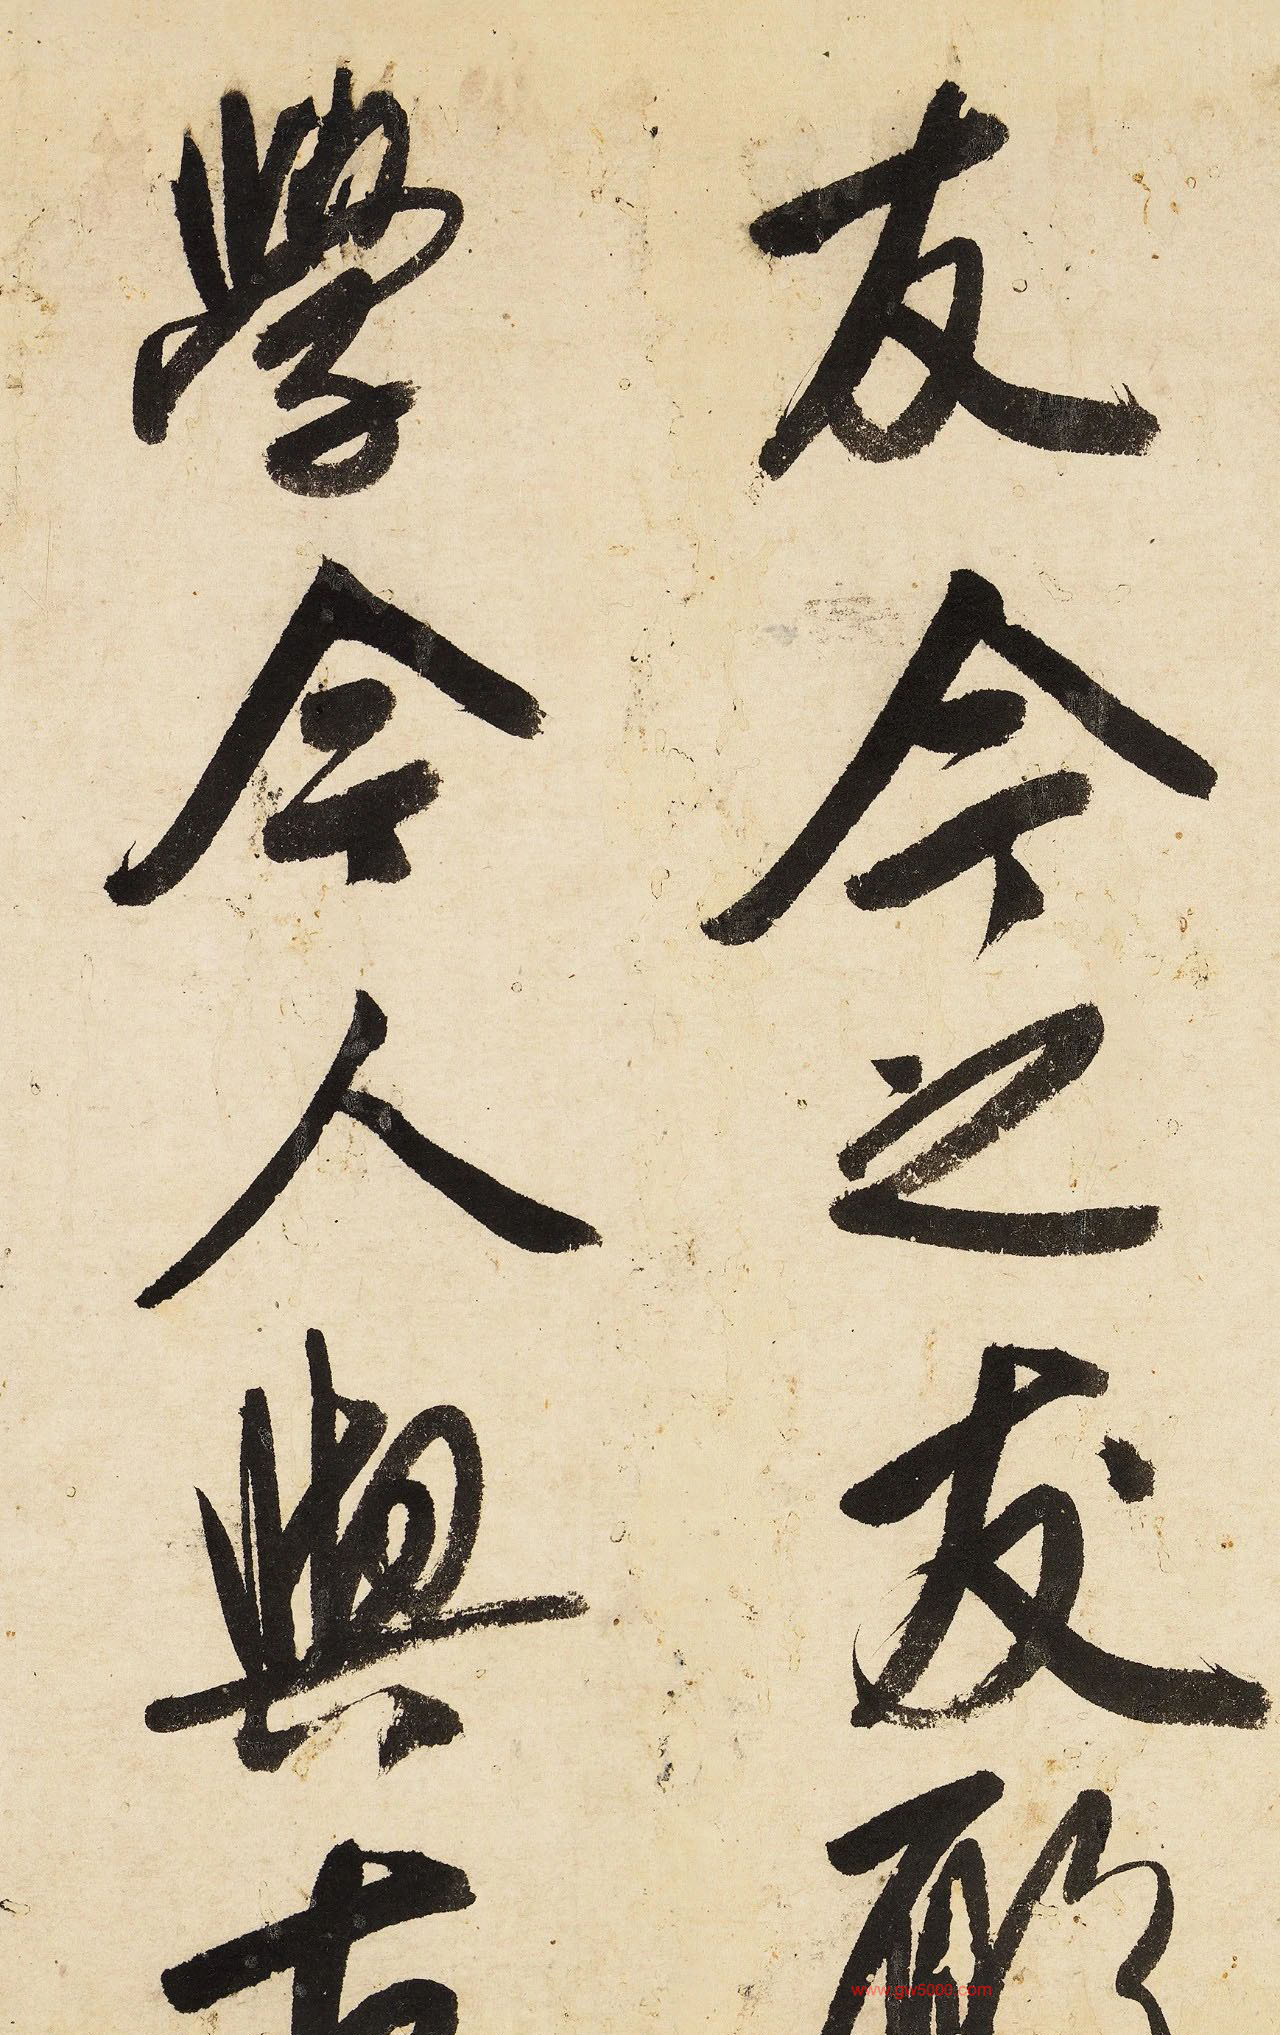 友今之友
學今人與古
www.gw5000.com